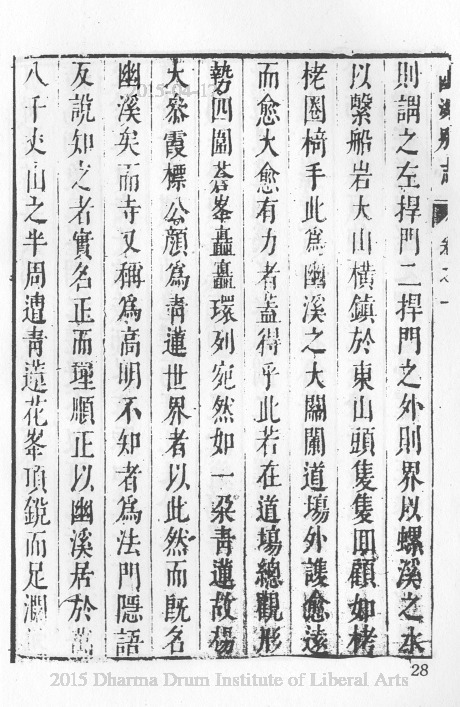 幽溪別志 卷之一
則謂之左捍門二捍門之外則界以螺溪之水
以繫船岩大山橫鎮於東山頭隻隻回顧如栲
栳圈椅手此為幽溪之大關闌道場外護愈遠
而愈大愈有力者蓋得乎此若在道場總觀形
勢四圍蒼峯矗矗環列宛然如一朶青蓮故楊
大叅霞標公顏為青蓮世界者以此然而既名
幽溪矣而寺又稱為高明不知者為法門隱語
反說知之者實名正而理順正以幽溪居於萬
八千丈山之半周遭青蓮花峯頂銳而足濶
28
2015-04-1
2015 Dharma Drum Institute of Liberal Arts